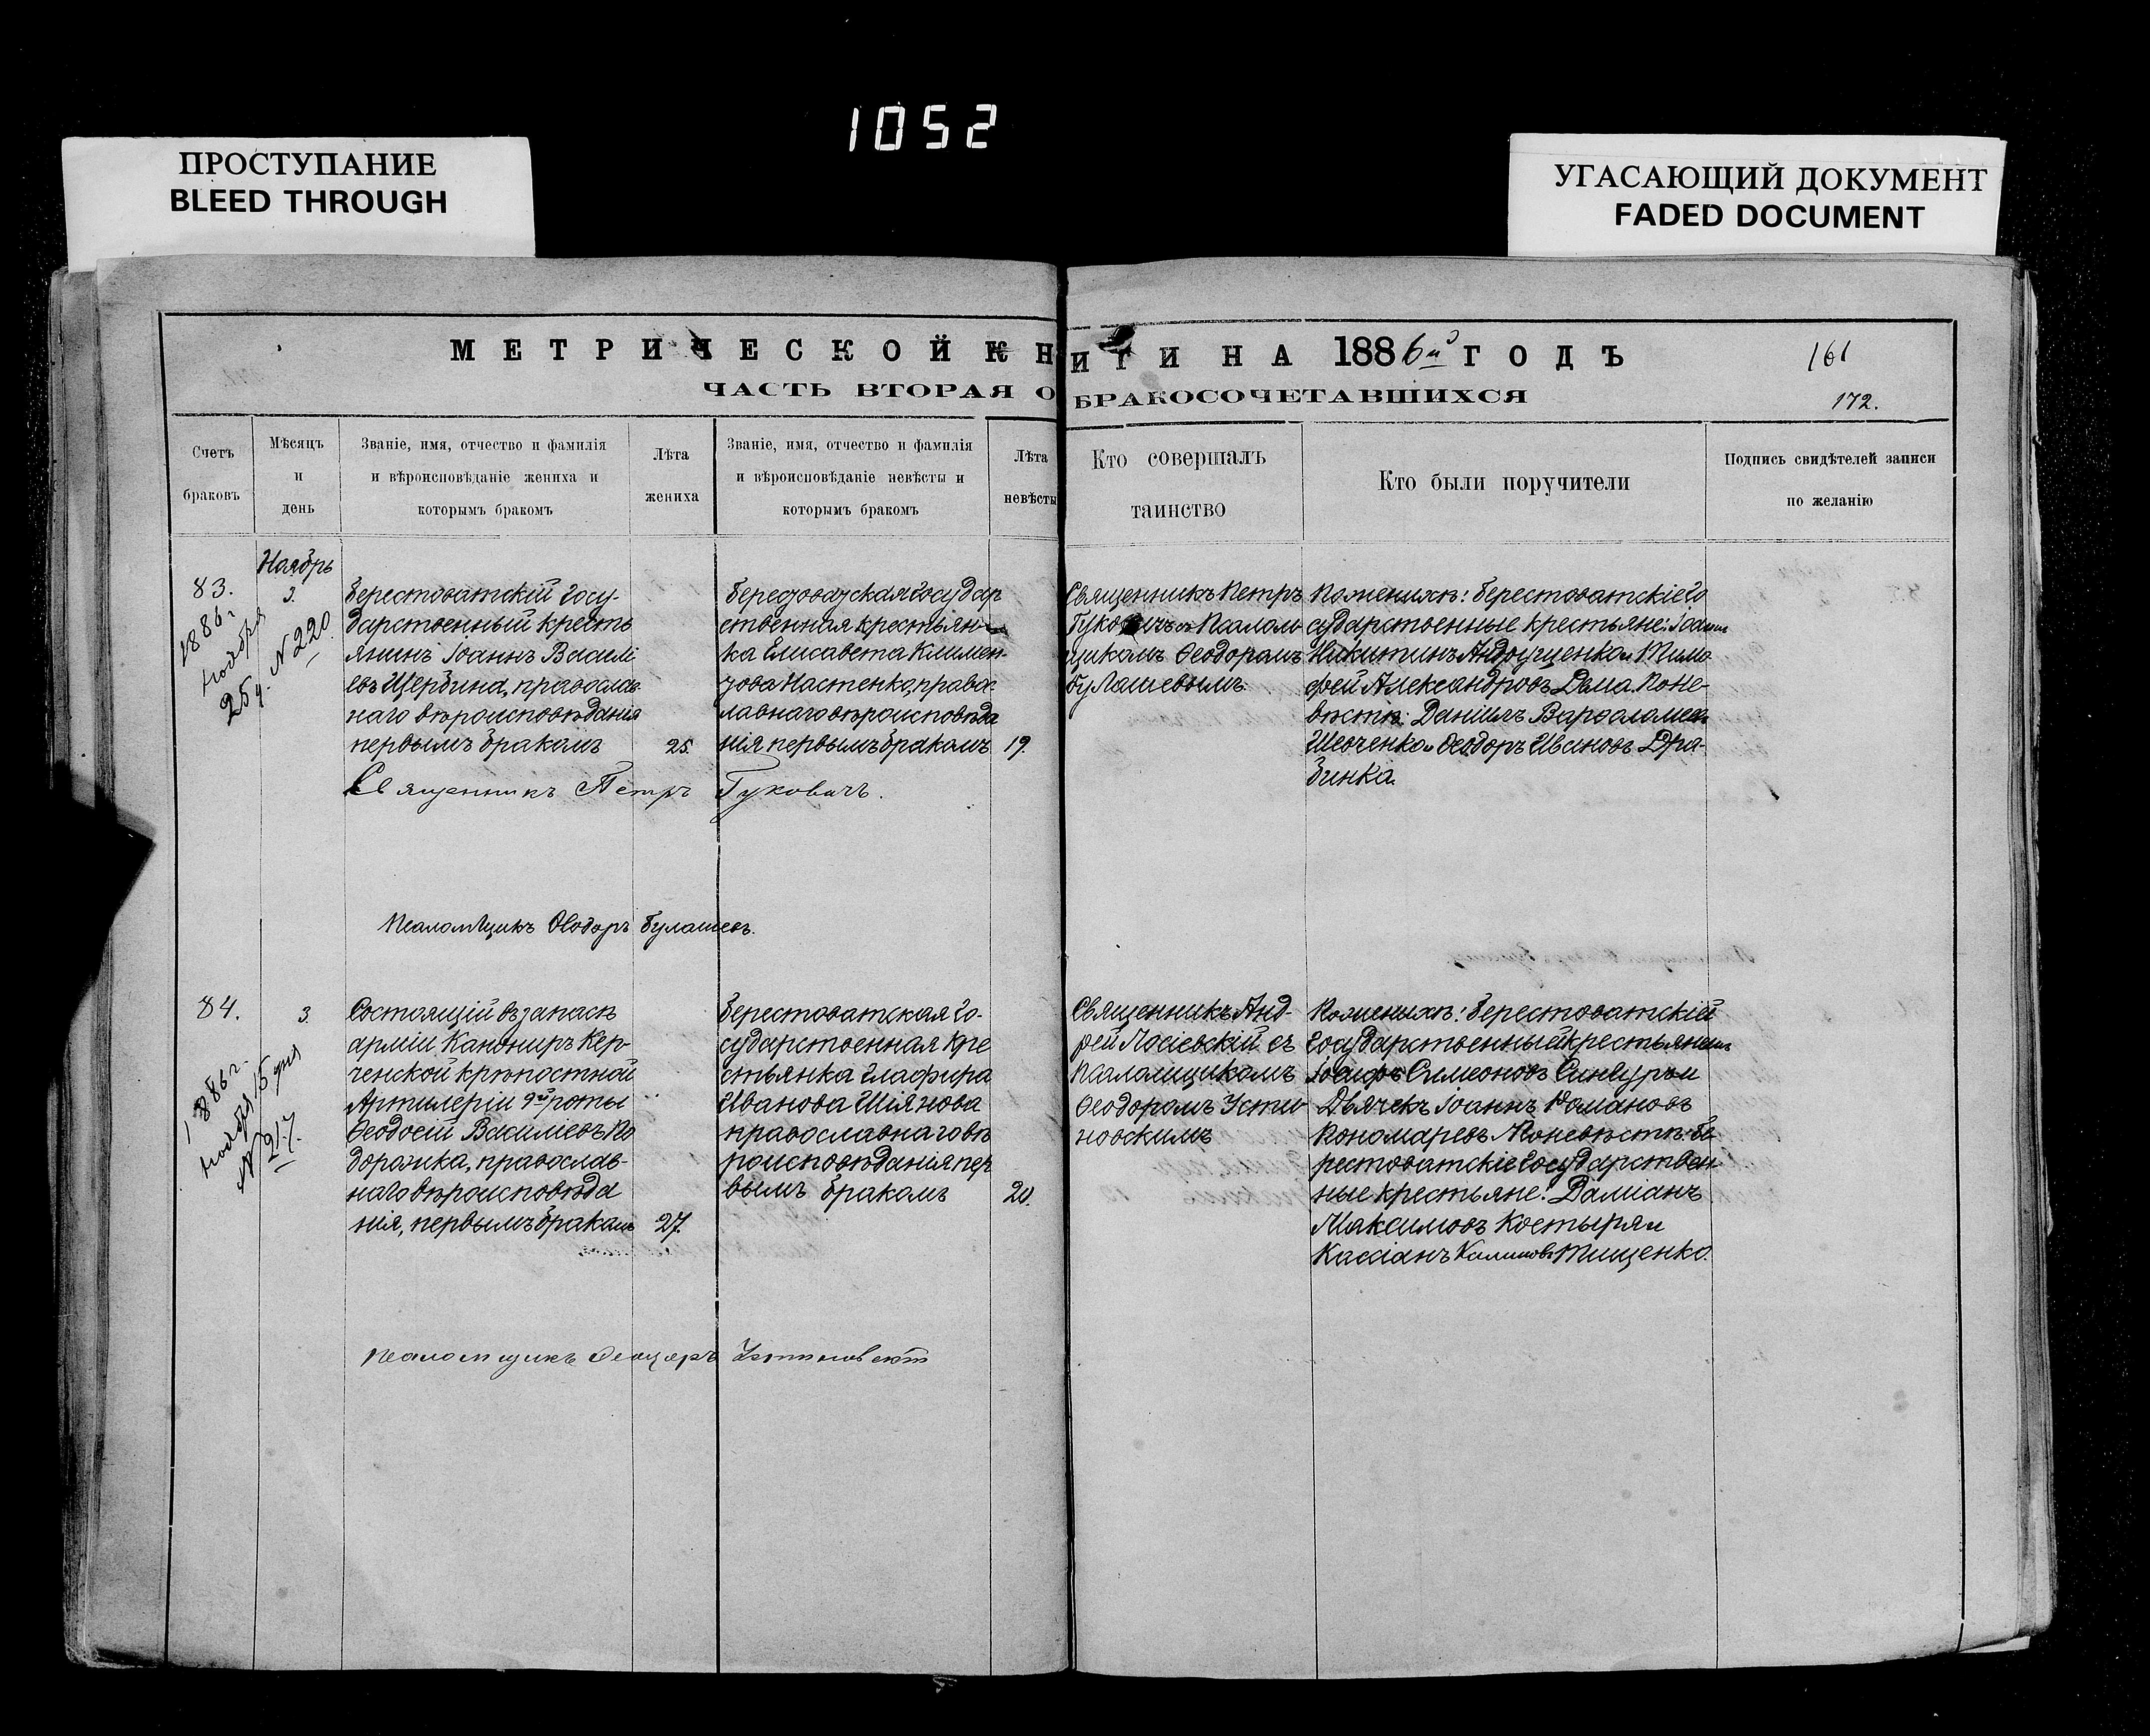 1052
ПРОСТУПАНИЕ
BLEED THROUGH
УГАСАЮЩИЙ ДОКУМЕНТ
FADED DOCUMENT
МЕТРИЧЕСКОЙ КНИГИ НА 1886й ГОДЪ
161
ЧАСТЬ ВТОРАЯ О БРАКОСОЧЕТАВШИХСЯ
172.
Счетъ
браковъ
Мѣсяцъ
и
день
Званіе, имя, отчество и фамилія
и вѣроисповѣданіе жениха и
которымъ бракомъ
Лѣта
жениха
Званіе, имя, отчество и фамилія
и вѣроисповѣданіе невѣсты и
которымъ бракомъ
Лѣта
невѣсты
Кто совершалъ
таинство
Кто были поручители
Подпись свидѣтелей записи
по желанію
Ноябрь
83.
3.
1886 г
ноября
25 д. N 220
Берестоватскій госу-
дарственный кресть
янинъ Іоаннъ Василі
евъ Щербина, православ
наго вѣроисповѣданія
первымъ бракомъ
25.
государ
ственная крестьян
ка Елисавета Климен-
това Настенко, право
славнаго вѣроисповѣда
нія первымъ бракомъ
19.
Священникъ Петръ
Гуковичъ съ Псалом
щикомъ Ѳеодоромъ
Булашевымъ
По женихѣ: Берестоватскіе го
сударственные крестьяне: Іоаннъ
Никитинъ и Тимо
фей Александровъ Дъма. По не-
вѣстѣ: Даніилъ Варѳоломеевъ
Шевченко и Ѳеодоръ Ивановъ Дра-
бинка.
Священникъ Петръ Гуковичъ.
Псаломщикъ Ѳеодоръ Булашевъ.
84.
3.
1886 г.
ноября 15 дня
N 217.
Состоящій въ запасѣ
арміи Канониръ Кер-
ченской крѣпостной
Артилеріи 9й роты
Ѳеодосій Василіевъ По
дорожка, православ-
наго вѣроисповѣда
нія, первымъ бракомъ
27.
Берестоватская го-
сударственная кре
стьянка Глафира
Иванова Шіянова
православнаго вѣ
роисповѣданія пер
вымъ бракомъ
20.
Священникъ Анд-
рей Лосіевскій съ
Псаломщикомъ
Ѳеодоромъ Усти
новскимъ
По женихѣ: Берестоватскій
государственный крестьянинъ
Іосифъ Симеоновъ и
Дьячекъ Іоаннъ Романовъ
Пономаревъ. По невѣстѣ: Бе
рестоватскіе государствен
ные крестьяне: Даміанъ
Максимовъ Костыря и
Кассіанъ Тищенко.
Псаломщикъ Ѳеодоръ Устиновскій